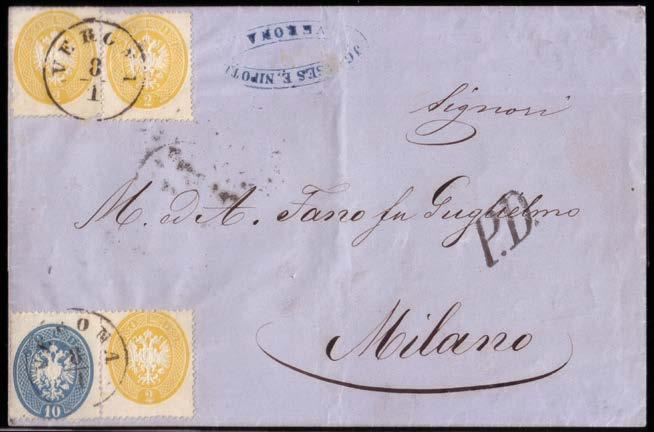 VERONA
8
1
2
VERONA
E NIPOTI
Signori
M. ed A. Fano fu Guglielmo
P.D.
Milano
VERONA
10
2